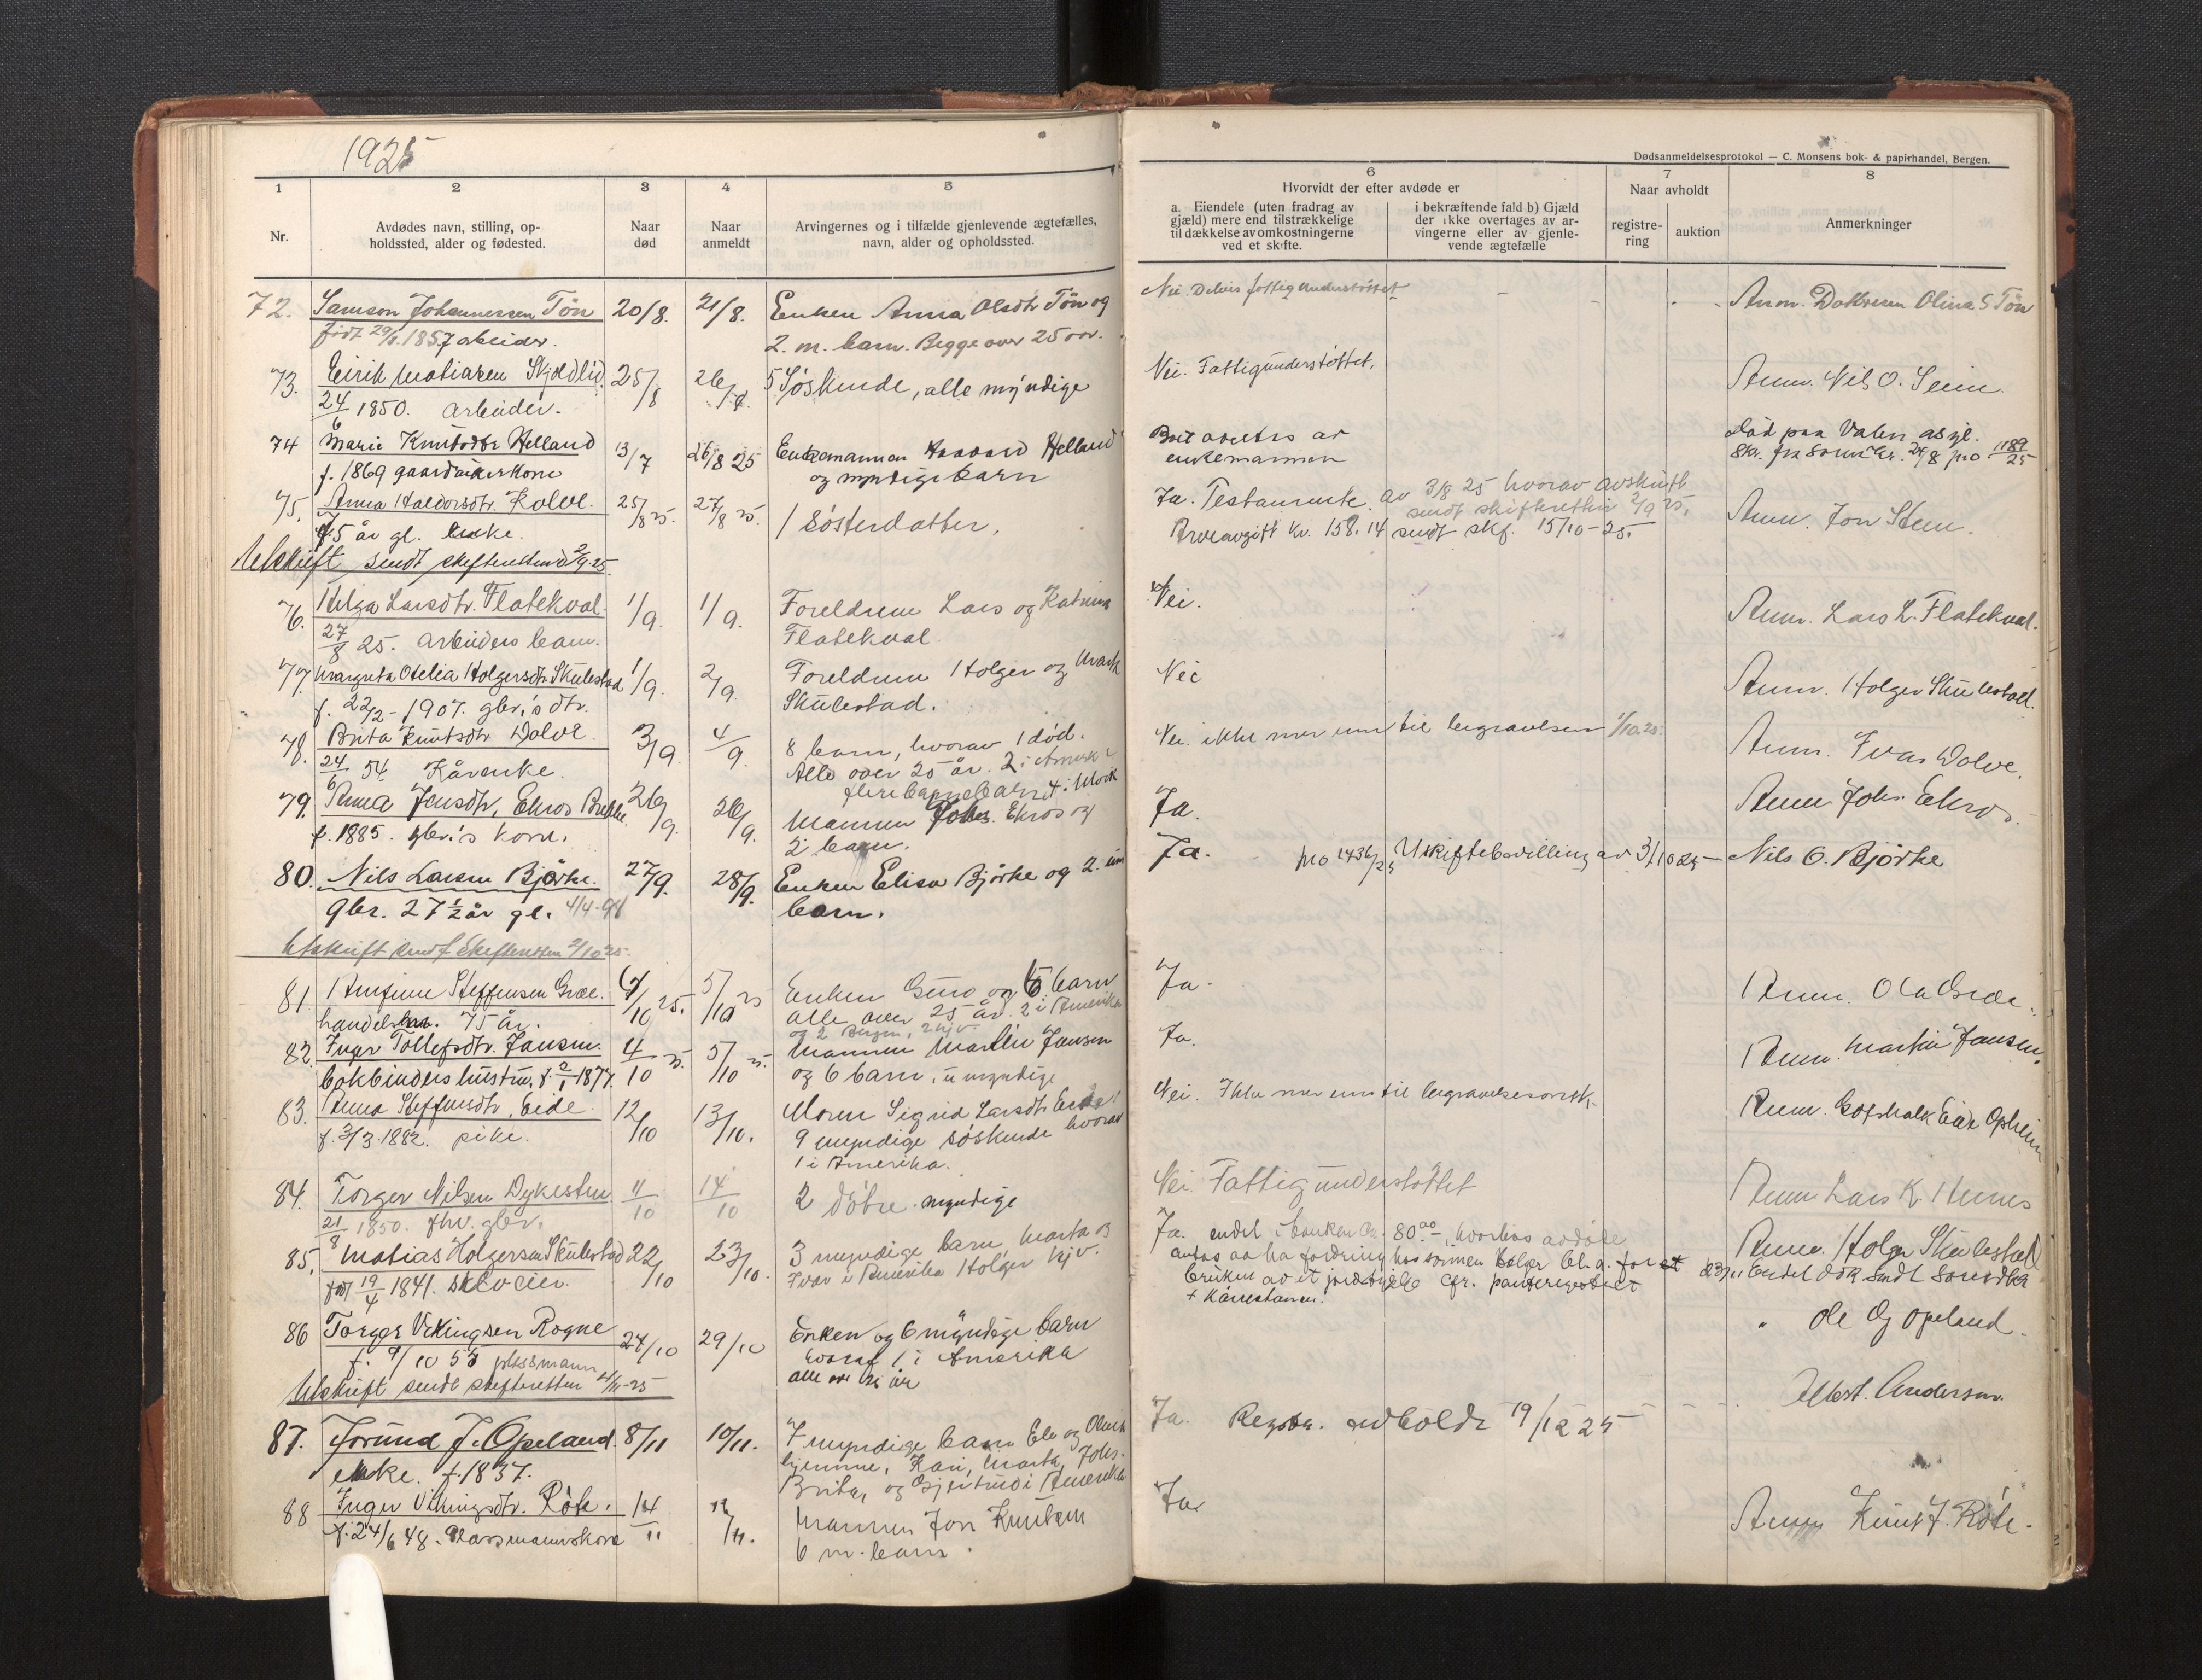 1925
Dødsanmeldelsesprotokol — C. Monsens bok- & papirhandel, Bergen.
1
2
3
4
5
6
7
8
Nr.
Avdødes navn, stilling, op-
holdssted, alder og fødested.
Naar
død
Naar
anmeldt
Arvingernes og i tilfælde gjenlevende ægtefælles,
navn, alder og opholdssted.
Hvorvidt der efter avdøde er
a. Eiendele (uten fradrag av
gjæld) mere end tilstrækkelige
til dækkelse av omkostningerne
ved et skifte.
i bekræftende fald b) Gjæld
der ikke overtages av ar-
vingerne eller av gjenle-
vende ægtefælle
Naar avholdt
registre-
ring
auktion
Anmerkninger
72. Samson Johannessen Tøn 20/8. 21/8. Enken Anna Olsdtr Tøn og Nei. Delvis fattigunderstøttet - - - - Anm. Datteren Olina S Tøn
født 29/ 1857 arbeider. 2. m. barn. Begge over 25 aar.
73. Eirik Matiasen Skjeldlid 25/8 26/8. 5 Søskende, alle myndige Nei. Fattigunderstøttet. Anm. Nils O. Seim.
24/6 1850. Arbeider.
74 Marie Knutsdtr Helland 13/7 26/8 25 Enkemannen Haavard Helland Boet overtas av Død paa Valen asyl.
f. 1869 gaardbrukerkone og myndige barn enkemannen Skr. fra 24/8 pro 1189/25
75. Anna Haldorsdtr. Kolve. 25/8 25. 27/8 25. 1 Søsterdatter. Ja. Testamente av 3/8 25 hvorav avskrift Anm. Jon Steen.
75 år gl. Enke. sendt skifteretten 2/9 25.
Arveavgift kr. 158.14 sendt skf. 15/10-25.
Utskrift sendt skifteretten 2/9-25.
76. Helga Larsdtr. Flatekval. 1/9. 1/9. Foreldrene Lars og Katrina Nei. Anm. Lars L. Flatekval.
27/8 25. Arbeiders barn. Flatekval.
77. Margreta Otelia Holgersdtr Skulestad 1/9. 2/9. Foreldrene Holger og Marta Nei Anm. Holger Skulestad.
f. 22/2-1907. gbr.'s dtr. Skulestad.
78. Brita Knutsdtr. Dolve. 3/9. 4/9. 8 barn, hvorav 1 død. Nei. ikke mer enn til begravelsen 1/10.25. Anm. Ivar Dolve.
24/6 54. Kårenke. Alle over 25 år. 2 i Amerika
flere barnebarn
79. Anna Jensdtr. Ekros 26/9. 26/9. Mannen Johs. Ekros og Ja. Anm. Johs. Ekros.
f. 1885. gbr.'s kone. 2 barn.
80. Nils Larsen Bjørke. 27/9. 28/9. Enken Elisa Bjørke og 2. um. Ja. pro 1436/25 Uskiftebevilling av 3/10 25 — Nils O. Bjørke
gbr. 27 1/2 år gl. 4/4-98 barn.
Utskrift sendt skifteretten 2/10 25.
81. Anfinn Steffensen Gree. /10 25. 5/10 25 Enken Guro og 6 barn Ja. Anm. Ola Gree.
handelsm. 75 år. alle over 25 år. 2 i Amerika
og 2 Bergen, 2 hjv.
82. Inger Tollefsdtr. Jansen. 4/10 25. 5/10 25. Mannen Martin Jansen Ja. Anm. Martin Jansen.
bokbinders hustru, f. 2/1-1877. og 6 barn, umyndige
83. Anna Steffensdtr. Eide. 12/10 13/10. Moren Sigrid Larsdtr Eide Nei. Ikke mer enn til begravelsesomk. Anm. Gotskalk Eide Opheim
f. 3/3.1882. pike. 9 myndige søskende hvorav
1 i Amerika.
84. Torger Nilsen Dykesteen 11/10 14/10 2 døtre. myndige Nei. Fattigunderstøttet Anm. Lars K. Humes
21/8 1850. fhv. gbr.
85. Matias Holgersen Skulestad 22/10 23/10. 3 myndige barn Marta og Ja. endel i banken kr. 80.00, hvorhos avdøde Anm. Holger Skulestad
født 19/4 1841. selveier. Ivar i Amerika Holger hjv. antas aa ha fordring hos sønnen Holger bl. a. for et 23/11 Endel dok sendt
bruken av et jordstykke cfr. panteregistret
+ Kårrestanse.
86 Torger Vikingsen Rogne 24/10 29/10 Enken og 6 myndige barn " Ole Opeland.
f. 9/10 55 plassmann hvoraf 1 i Amerika
alle over 21 år
Utskrift sendt skifteretten 4/11-25
87. Jorund J. Opeland. 8/11 10/11. 7 myndige barn Ola og Ja. Registr. avholdt 19/12 25 - - - Albert Andersen.
enke. f. 1837. hjemme, Kari, Marta, Johs.
Brita, og Gjertrud i Amerika
88 Inger Vikingsdtr. Røte. 14/11 /11. Mannen Jon Knutsen Ja Anm Knut J. Røte.
f. 24/6 48. Plassmannskone 6 m. barn.